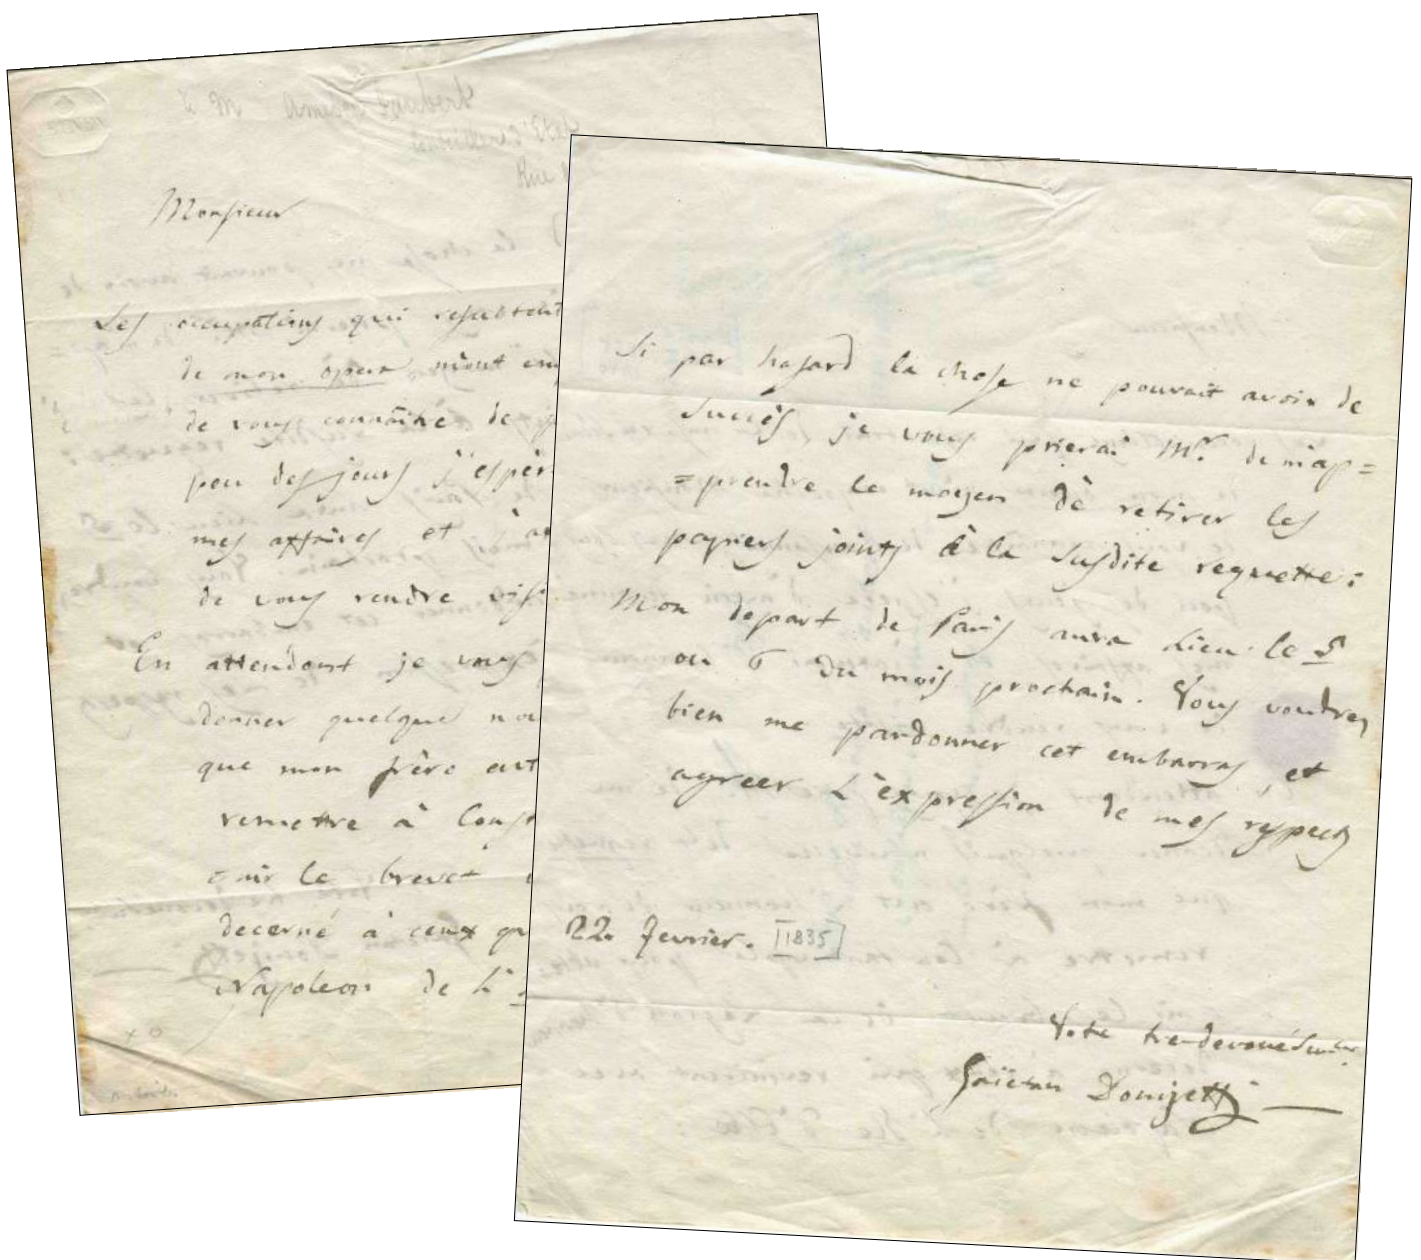 Mr Amédée Jaubert
Rue
Monsieur
Les occupations qui resultent
de mon opera m'ont em
de vous connaître de
peu des jours j'espèr
mes affaires et à
de vous rendre visi
En attendant je vous
donner quelque nou
que mon frère eut
remettre à Const
=nir le brevet
decerné à ceux qu
Napoleon de L'
Si par hasard la chose ne pouvait avoir de
succès je vous prierai Mr. de m'ap=
=prendre le moyen de retirer les
papiers joints à la susdite requette:
Mon depart de Paris aura Lieu le 5
ou 6 du mois prochain. Vous voudrez
bien me pardonner cet embarras, et
agreer L'expression de mes respects
22. fevrier. [1835]
Vote tre-devoué Serviteur
Gaëtan Donizetti